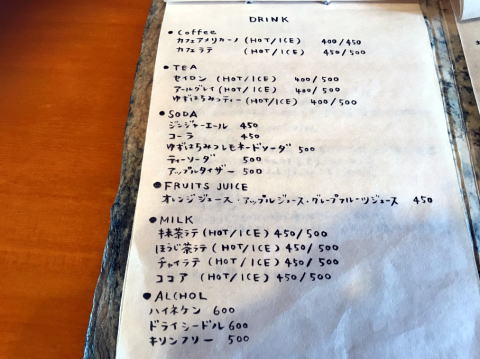 DRINK
● Coffee
カフェアメリカーノ (HOT/ICE) 400/450
カフェラテ (HOT/ICE) 450/500
● TEA
セイロン (HOT/ICE) 400/500
アールグレイ (HOT/ICE) 400/500
ゆずはちみつティー (HOT/ICE) 400/500
● SODA
ジンジャーエール 450
コーラ 450
ゆずはちみつレモネードソーダ 500
ティーソーダ 500
アップルタイザー 500
● FRUITS JUICE
オレンジジュース・アップルジュース・グレープフルーツジュース 450
● MILK
抹茶ラテ (HOT/ICE) 450/500
ほうじ茶ラテ (HOT/ICE) 450/500
チャイラテ (HOT/ICE) 450/500
ココア (HOT/ICE) 450/500
● ALCHOL
ハイネケン 600
ドライシードル 600
キリンフリー 500